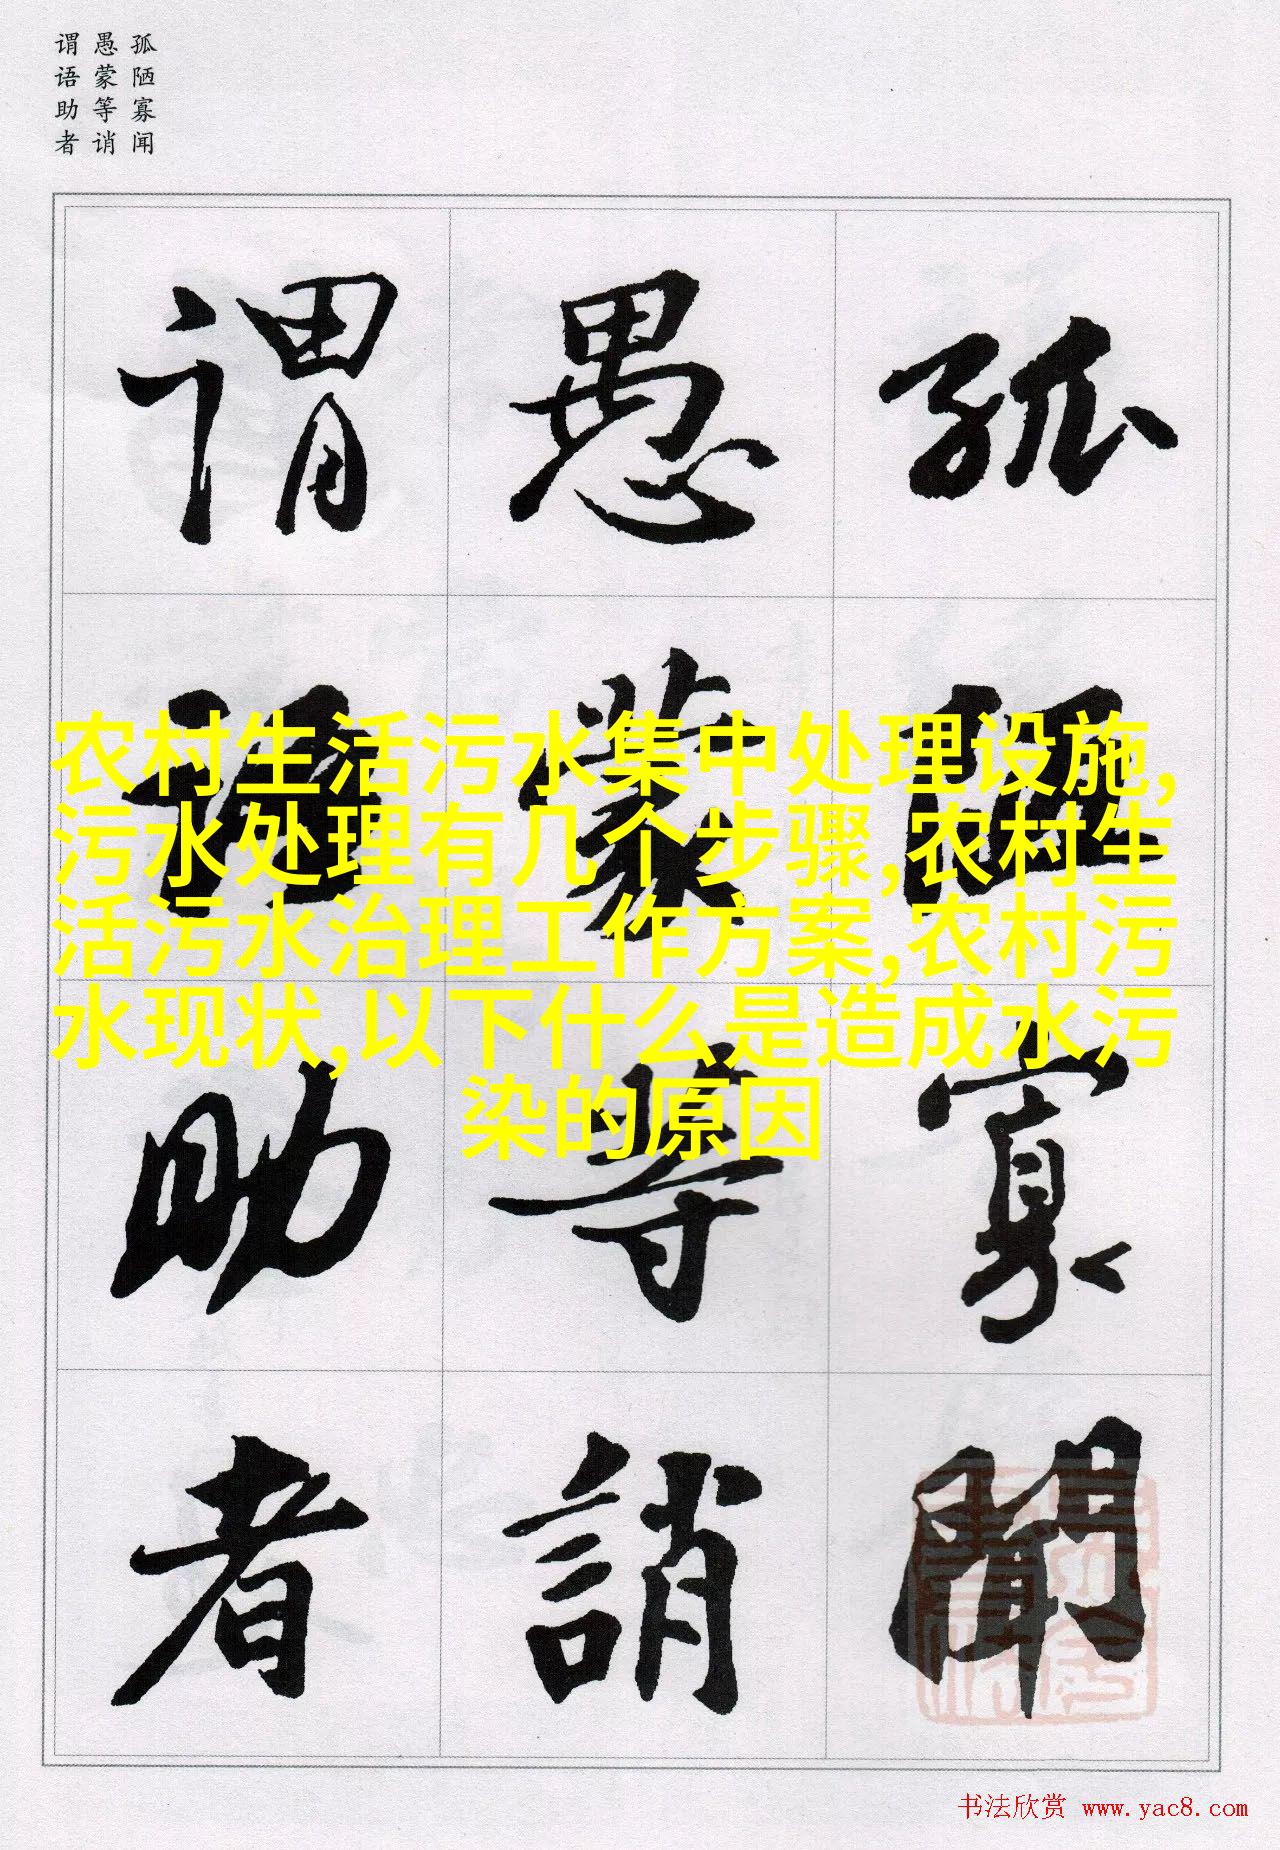 孤陋寡闻
愚蒙等诮
谓语助者
孤陋寡聞
愚蒙等誚
谓语助者
农村生活污水集中处理设施,
污水处理有几个步骤,农村生
活污水治理工作方案,农村污
水现状,以下什么是造成水污
染的原因
书法欣赏 www.yac8.com